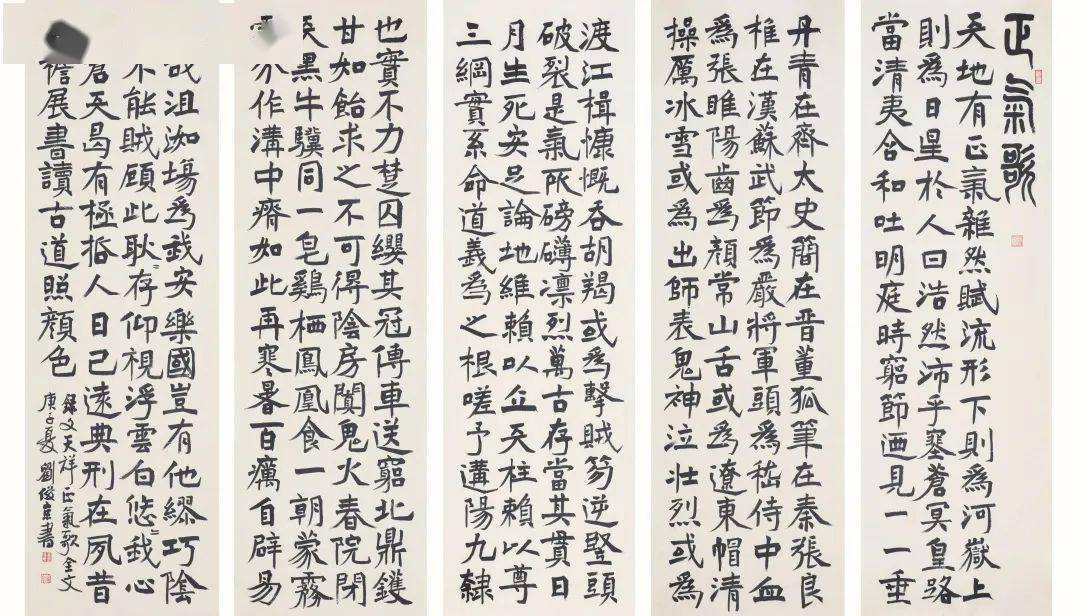 正氣歌
天地有正氣雜然賦流形下則為河嶽上
則為日星於人曰浩然沛乎塞蒼冥皇路
當清夷含和吐明庭時窮節迺見一一垂
丹青在齊太史簡在晉董狐筆在秦張良
椎在漢蘇武節為嚴將軍頭為嵇侍中血
為張睢陽齒為顏常山舌或為遼東帽清
操厲冰雪或為出師表鬼神泣壯烈或為
渡江楫慷慨吞胡羯或為擊賊笏逆豎頭
破裂是氣所磅礴凜烈萬古存當其貫日
月生死安足論地維賴以立天柱賴以尊
三綱實系命道義為之根嗟予遘陽九隸
也實不力楚囚纓其冠傳車送窮北鼎鑊
甘如飴求之不可得陰房闃鬼火春院閟
天黑牛驥同一皂鷄栖鳳凰食一朝蒙霧
分作溝中瘠如此再寒暑百癘自辟易
哉沮洳場為我安樂國豈有他繆巧陰
不能賊顧此耿〻存仰視浮雲白悠〻我心
蒼天曷有極哲人日已遠典刑在夙昔
簷展書讀古道照顏色
錄文天祥正氣歌全文
庚子夏劉俊京書